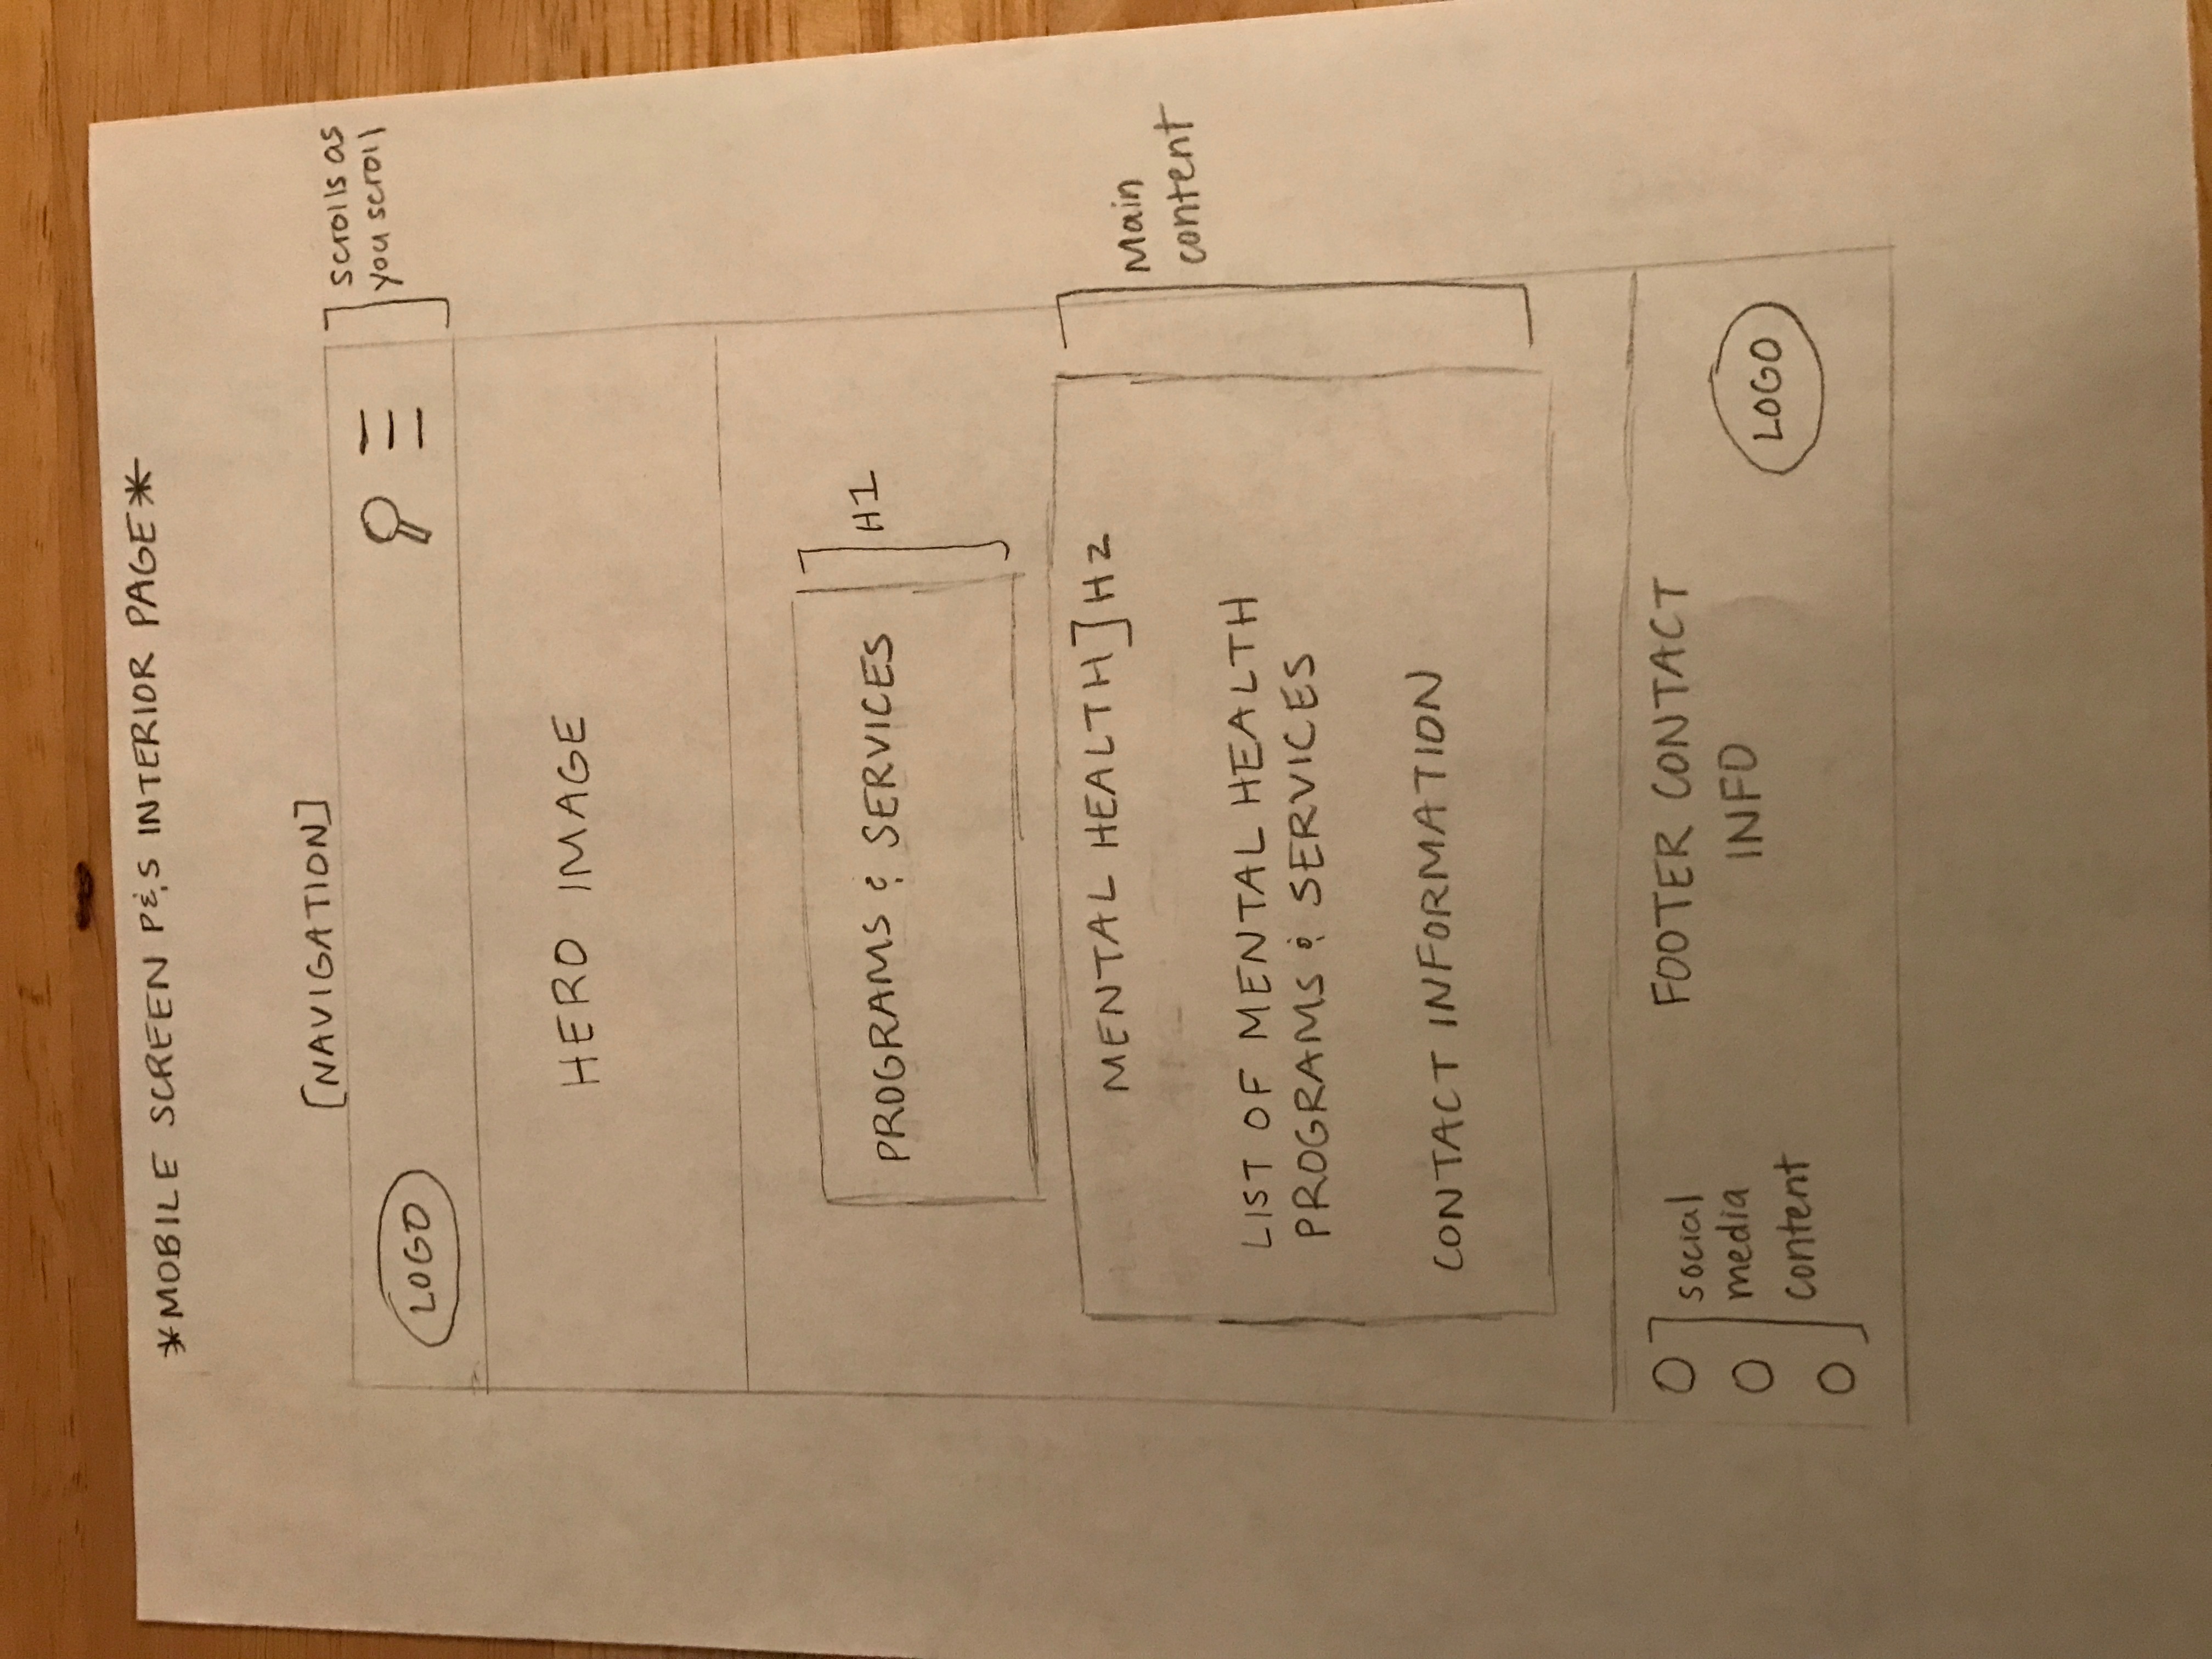 *MOBILE SCREEN P&S INTERIOR PAGE*
[NAVIGATION]
scrolls as
you scroll
LOGO
HERO IMAGE
PROGRAMS & SERVICES
H1
MENTAL HEALTH] H2
Main
content
LIST OF MENTAL HEALTH
PROGRAMS & SERVICES
CONTACT INFORMATION
social
media
content
FOOTER CONTACT
INFO
LOGO